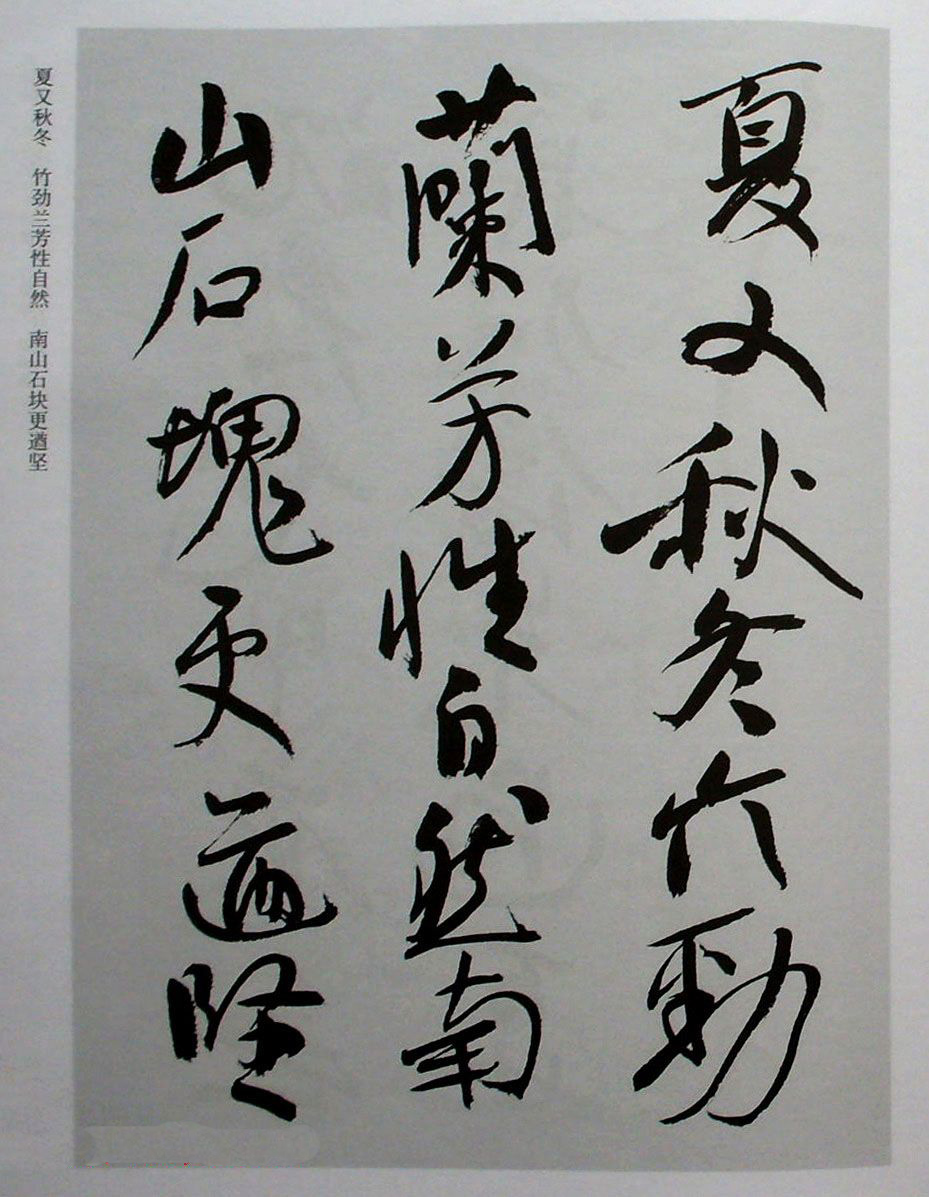 夏又秋冬竹勁
蘭芳性自然南
山石塊更遒堅
夏又秋冬 竹劲兰芳性自然 南山石块更遒坚